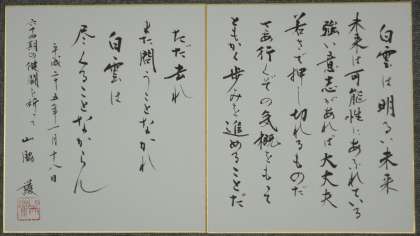 白雲は明るい未来
未来は可能性にあふれている
強い意志があれば大丈夫
若さで押し切れるものだ
で行くぞの気概をもって
ともかく歩みを進めることだ
ただ去れ
また問うことなかれ
白雲は
尽くることなからん
六十四期の健闘を祈って
平成二十五年一月十八日
山脇 護